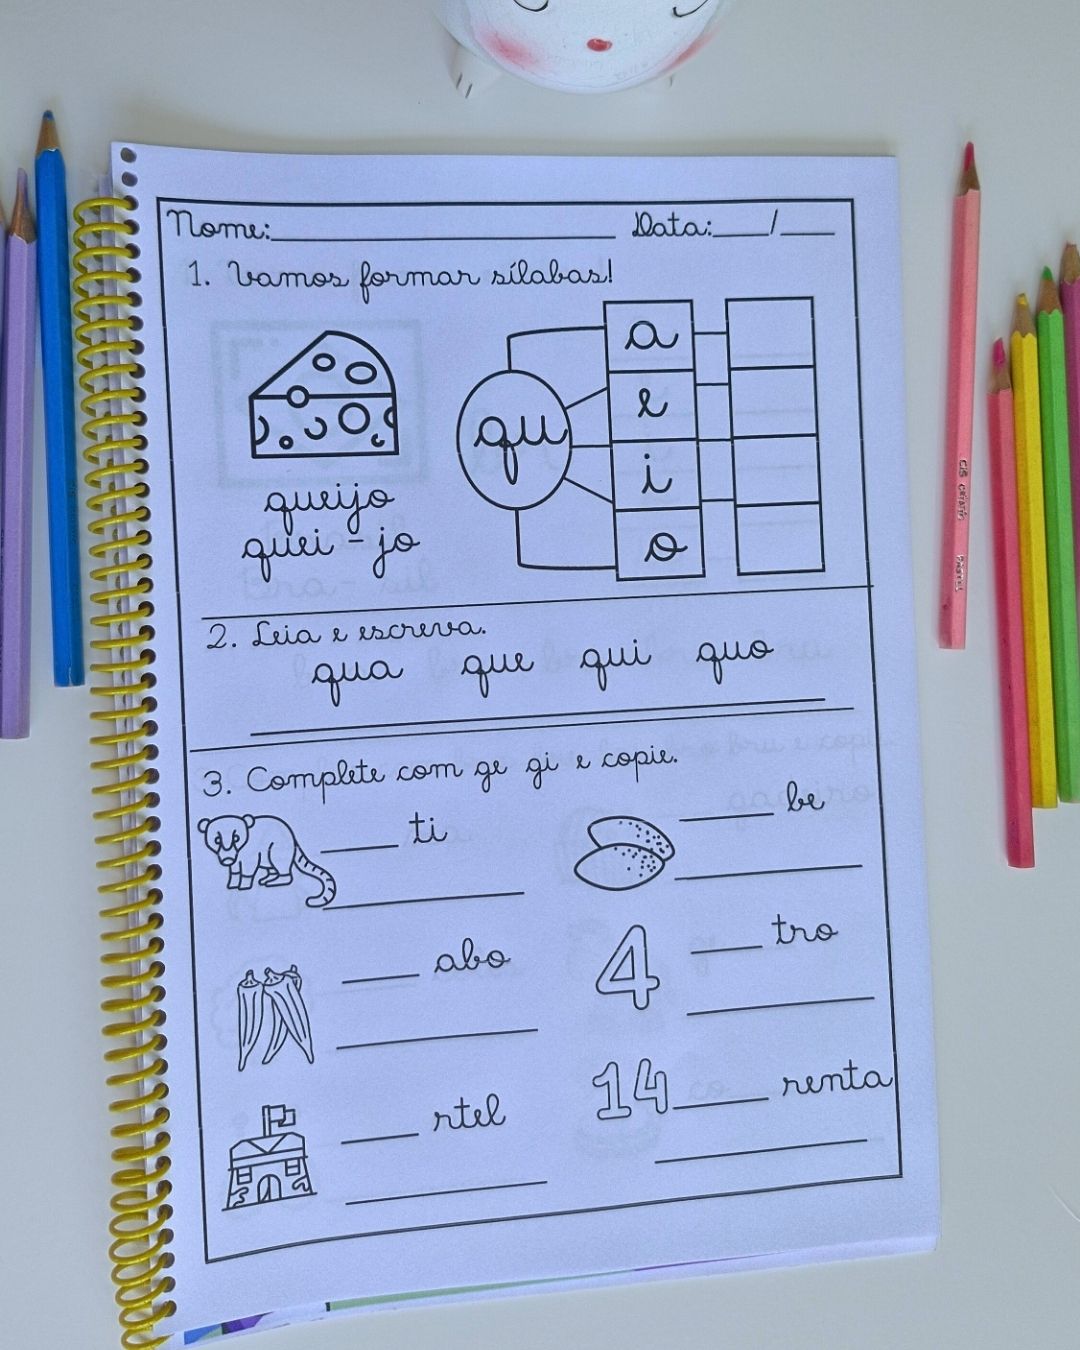 Nome:____________ Data:____/____
1. Vamos formar sílabas!
queijo
quei - jo
qu
a
e
i
o
2. Leia e escreva.
qua que qui quo
3. Complete com ge gi e copie.
____ ti
____ be
____ abo
4 ____ tro
____ rtel
14 ____ renta
CIS CRIATIC PASTEL